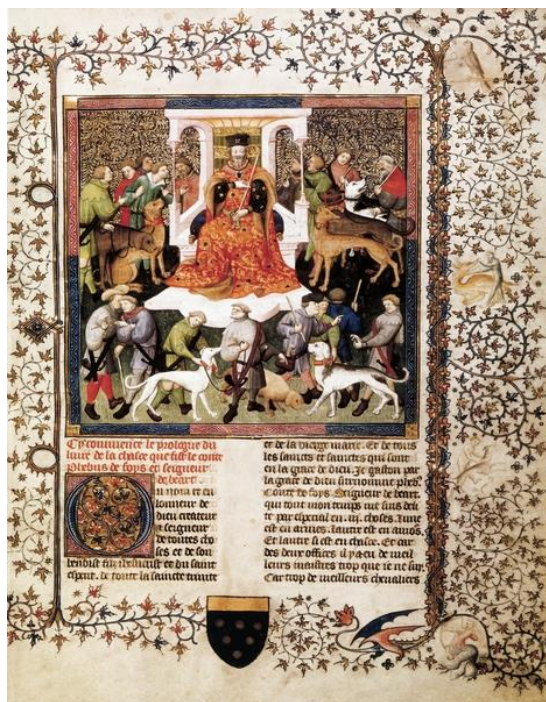 Cy commence le prologue du
liure de la chasse que fist le conte
phebus de foys et seigneur
de bearn
Ou nom et en
lonneur de
dieu createur
et seigneur
de toutes cho
ses et de son
benoist filz Jhesucrist et du saint
esperit. de toute la saincte trinite
et de la vierge marie. Et de tous
les sains et sainctes qui sont
en la grace de dieu. Je gaston par
la grace de dieu surnomme pheb.
Conte de foys. Seigneur de bearn.
qui tout mon temps me suis deli
te par especial en .iii. choses. lune
est en armes. lautre est en amors.
Et lautre si est en chasce. Et car
des deux offices il ya eu de meil
leurs maistres trop que ie ne suy.
Car trop de meilleurs cheualiers